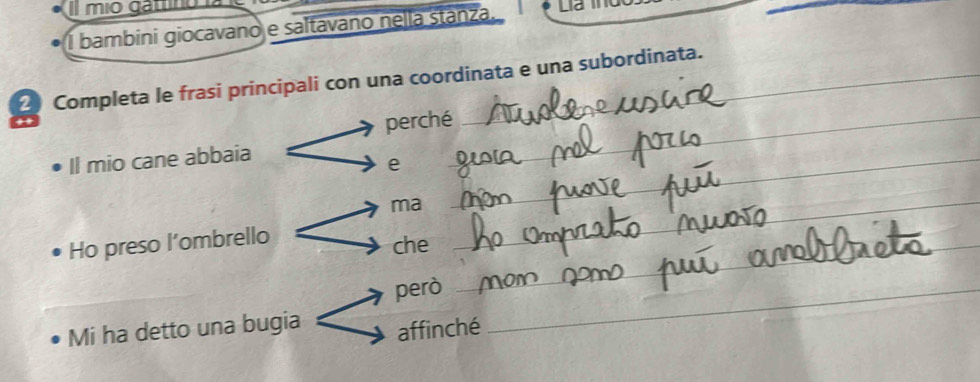 Il mio gattino
• I bambini giocavano e saltavano nella stanza.
• Lia
2 Completa le frasi principali con una coordinata e una subordinata.
• Il mio cane abbaia
perché vuole uscire
e gioca nel porco
• Ho preso l'ombrello
ma non piove più
che ho comprato nuovo
• Mi ha detto una bugia
però non sono più
affinché